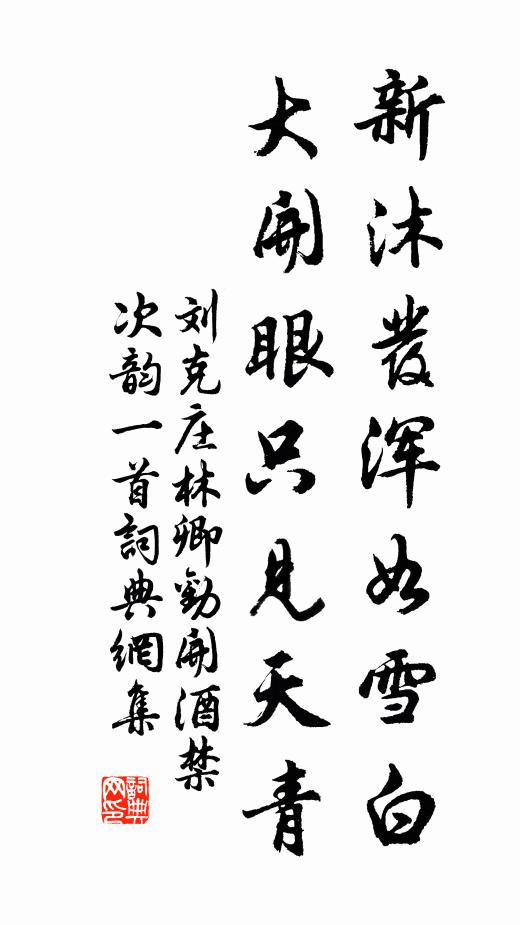 新沐發浑如雪白
大開眼只見天青
刘克庄林卿勸開酒禁
次韵一首詞典網集
詞典网印